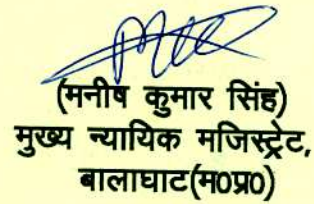 (मनीष कुमार सिंह)
मुख्य न्यायिक मजिस्ट्रेट,
बालाघाट(म0प्र0)